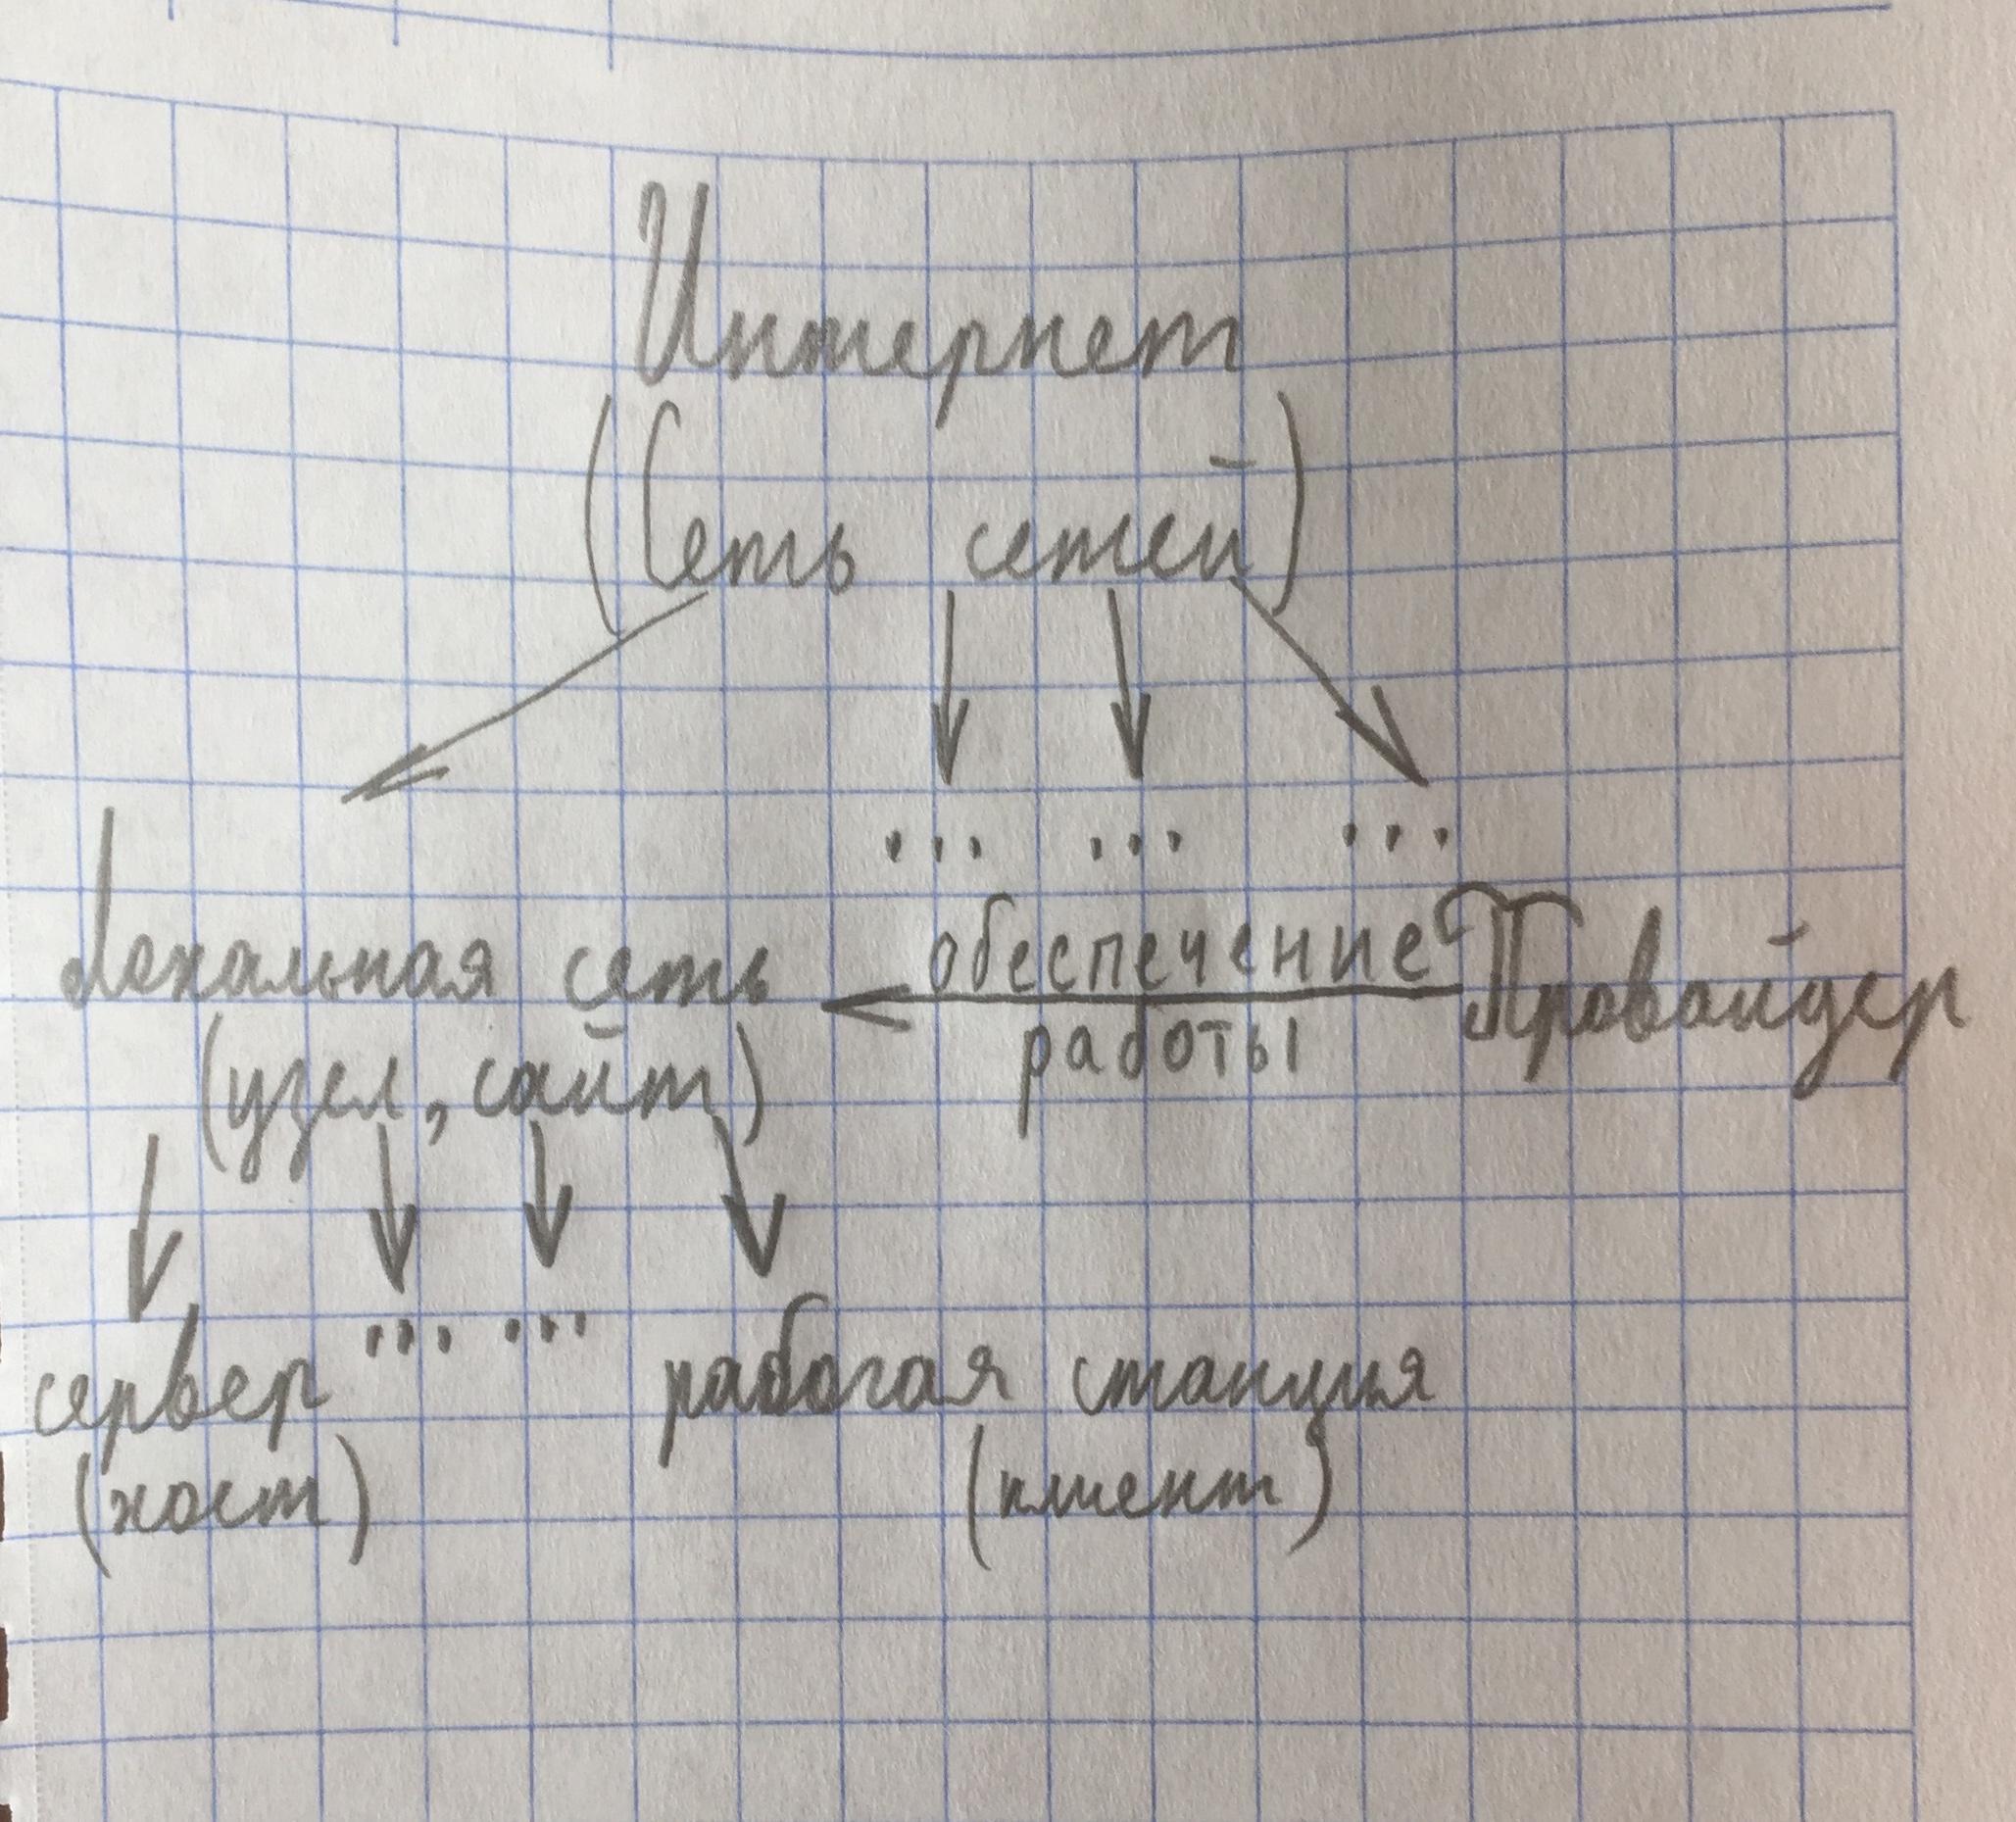 Интернет
(Сеть сетей)
... ... ...
Локальная сеть обеспечение Провайдер
(узел, сайт) работы
сервер ... ... рабочая станция
(хост) (клиент)